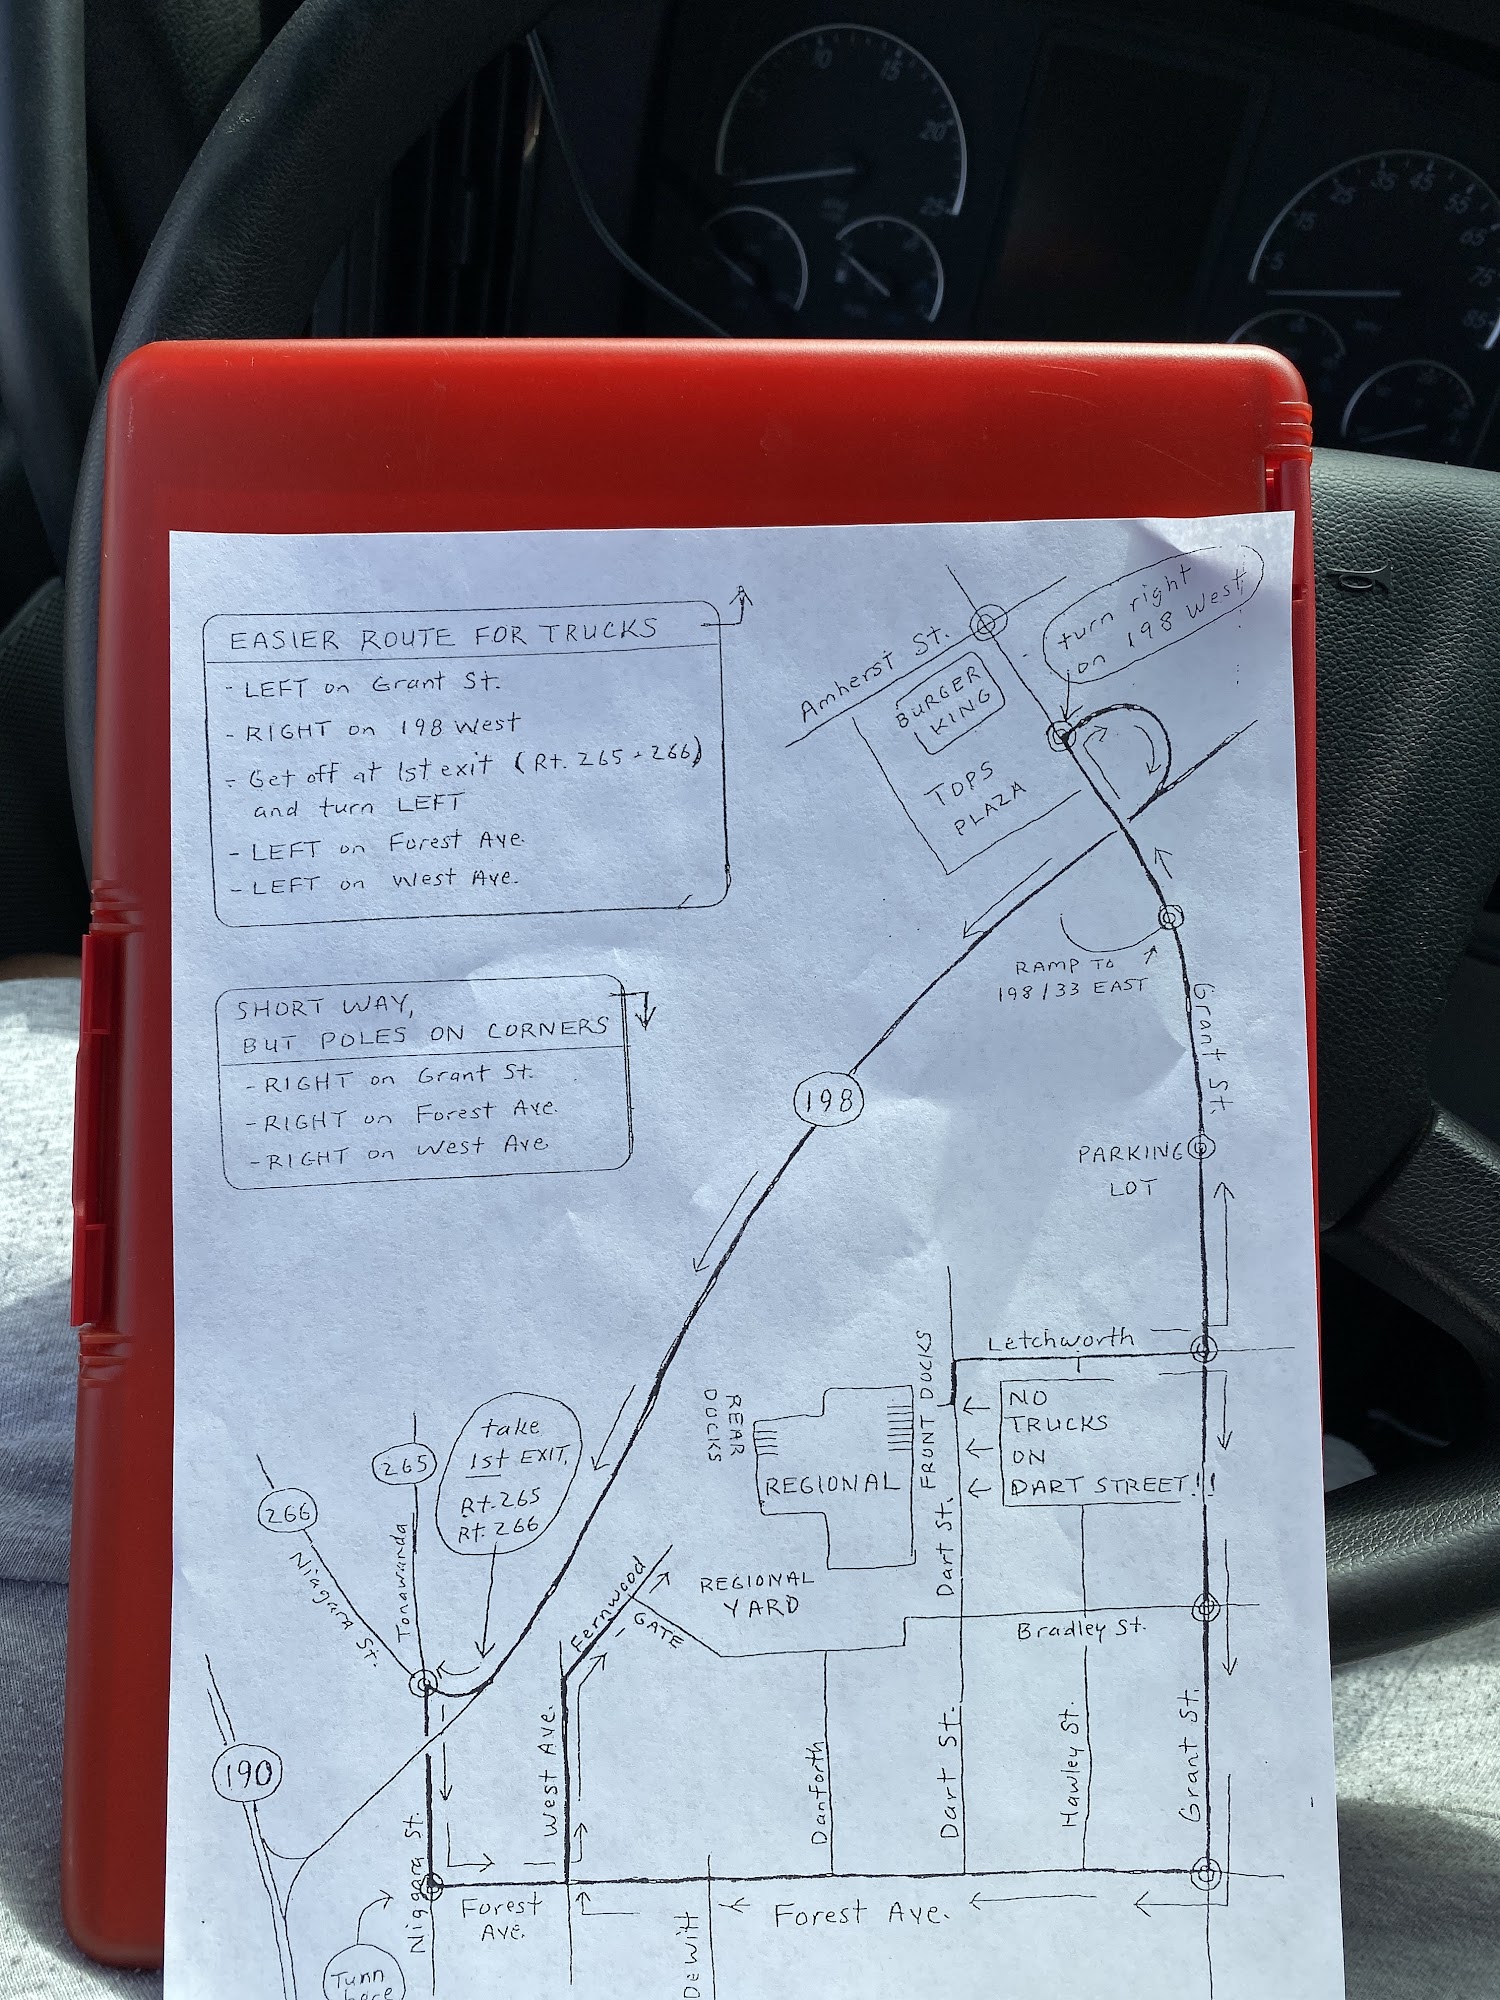 10
15
20
25
5
15
25
35
45
55
65
75
85
EASIER ROUTE FOR TRUCKS
- LEFT on Grant St.
- RIGHT on 198 West
- Get off at 1st exit (Rt. 265 + 266)
and turn LEFT
- LEFT on Forest Ave.
- LEFT on West Ave.
SHORT WAY,
BUT POLES ON CORNERS
- RIGHT on Grant St.
- RIGHT on Forest Ave.
- RIGHT on West Ave
turn right
on 198 West
Amherst St.
BURGER
KING
TOPS
PLAZA
RAMP TO
198/33 EAST
Grant St.
198
PARKING
LOT
Letchworth
FRONT DOCKS
REAR
DOCKS
REGIONAL
NO
TRUCKS
ON
DART STREET!!
take
1st EXIT,
Rt. 265
Rt. 266
265
266
Niagara St.
Tonawanda
Fernwood
GATE
REGIONAL
YARD
Dart St.
Bradley St.
190
West Ave.
Danforth
Dart St.
Hawley St.
Grant St.
Niagara St.
Forest
Ave.
DeWitt
Forest Ave.
Turn
here